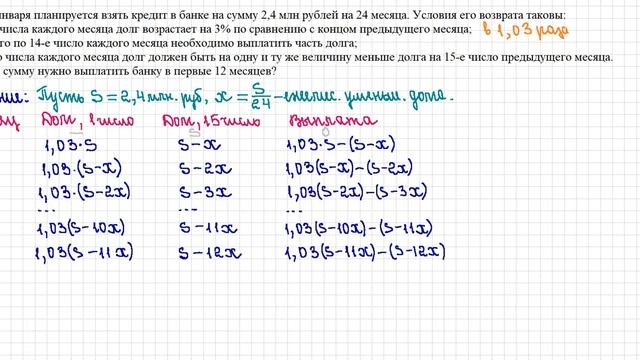 января планируется взять кредит в банке на сумму 2,4 млн рублей на 24 месяца. Условия его возврата таковы:
числа каждого месяца долг возрастает на 3% по сравнению с концом предыдущего месяца; в 1,03 раза
го по 14-е число каждого месяца необходимо выплатить часть долга;
о числа каждого месяца долг должен быть на одну и ту же величину меньше долга на 15-е число предыдущего месяца.
сумму нужно выплатить банку в первые 12 месяцев?
ение: Пусть S = 2,4 млн. руб, x = S/24 - ежемес. уменьш. долга.
яц Долг, 1 число Долг, 15 число Выплата
S 0
1,03·S S-x 1,03·S-(S-x)
1,03·(S-x) S-2x 1,03(S-x)-(S-2x)
1,03·(S-2x) S-3x 1,03(S-2x)-(S-3x)
... ... ...
1,03(S-10x) S-11x 1,03(S-10x)-(S-11x)
1,03(S-11x) S-12x 1,03(S-11x)-(S-12x)